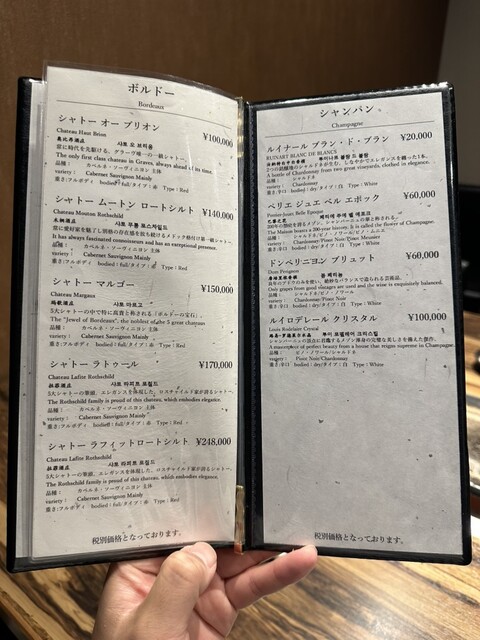 ボルドー
Bordeaux
シャトー オー ブリオン ¥100,000
Chateau Haut Brion
샤토 오 브리옹
常に時代を先駆ける、グラーヴ唯一の一級シャトー。
The only first class chateau in Graves, always ahead of its time.
品種： カベルネ・ソーヴィニヨン 主体
variety： Cabernet Sauvignon Mainly
重さ:フルボディ bodied：full/タイプ：赤 Type：Red
シャトー ムートン ロートシルト ¥140,000
Chateau Mouton Rothschild
샤토 무통 로스차일드
常に愛好家を魅了し別格の存在感を放ち続けるメドック格付け第一級シャトー。
It has always fascinated connoisseurs and has an exceptional presence.
品種： カベルネ・ソーヴィニヨン 主体
variety： Cabernet Sauvignon Mainly
重さ:フルボディ bodied：full/タイプ：赤 Type：Red
シャトー マルゴー ¥150,000
Chateau Margaux
샤토 마르고
5大シャトーの中で特に高貴と称される「ボルドーの宝石」。
The "Jewel of Bordeaux", the noblest of the 5 great chateaus
品種： カベルネ・ソーヴィニヨン 主体
variety： Cabernet Sauvignon Mainly
重さ:フルボディ bodied：full/タイプ：赤 Type：Red
シャトー ラトゥール ¥170,000
Chateau Lafite Rothschild
샤토 라피트 로칠드
5大シャトーの筆頭、エレガンスを体現した、ロスチャイルド家が誇るシャトー。
The Rothschild family is proud of this chateau, which embodies elegance.
品種： カベルネ・ソーヴィニヨン 主体
variety： Cabernet Sauvignon Mainly
重さ:フルボディ bodied：full/タイプ：赤 Type：Red
シャトー ラフィットロートシルト ¥248,000
Chateau Lafite Rothschild
샤토 라피트 로칠드
5大シャトーの筆頭、エレガンスを体現した、ロスチャイルド家が誇るシャトー。
The Rothschild family is proud of this chateau, which embodies elegance.
品種： カベルネ・ソーヴィニヨン 主体
variety： Cabernet Sauvignon Mainly
重さ:フルボディ bodied：full/タイプ：赤 Type：Red
税別価格となっております。
シャンパン
Champagne
ルイナール ブラン・ド・ブラン ¥20,000
RUINART BLANC DE BLANCS
A bottle of Chardonnay from two great vineyards, clothed in elegance.
品種： シャルドネ
variety： Chardonnay
重さ:辛口 bodied：dry/タイプ：白 Type：White
ペリエ ジュエ ベル エポック ¥60,000
Perrier-Jouët Belle Epoque
The Maison boasts a 200-year history. It is called the flower of Champagne.
品種： シャルドネ/ピノ・ノワール/ピノ・ムニエ
variety： Chardonnay/Pinot Noir/Pinot Meunier
重さ:辛口 bodied：dry/タイプ：白 Type：White
ドンペリニヨン ブリュット ¥60,000
Dom Perignon
돔 페리뇽
Only grapes from good vintages are used and the wine is exquisitely balanced.
品種： シャルドネ/ピノ・ノワール
variety： Chardonnay/Pinot Noir
重さ:辛口 bodied：dry/タイプ：白 Type：White
ルイロデレール クリスタル ¥100,000
Louis Roederer Crystal
A masterpiece of perfect beauty from a house that reigns supreme in Champagne.
品種： ピノ・ノワール/シャルドネ
variety： Pinot Noir/Chardonnay
重さ:辛口 bodied：dry/タイプ：白 Type：White
税別価格となっております。